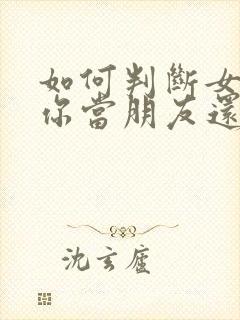 如何判斷女
你當朋友還
沈玄廬